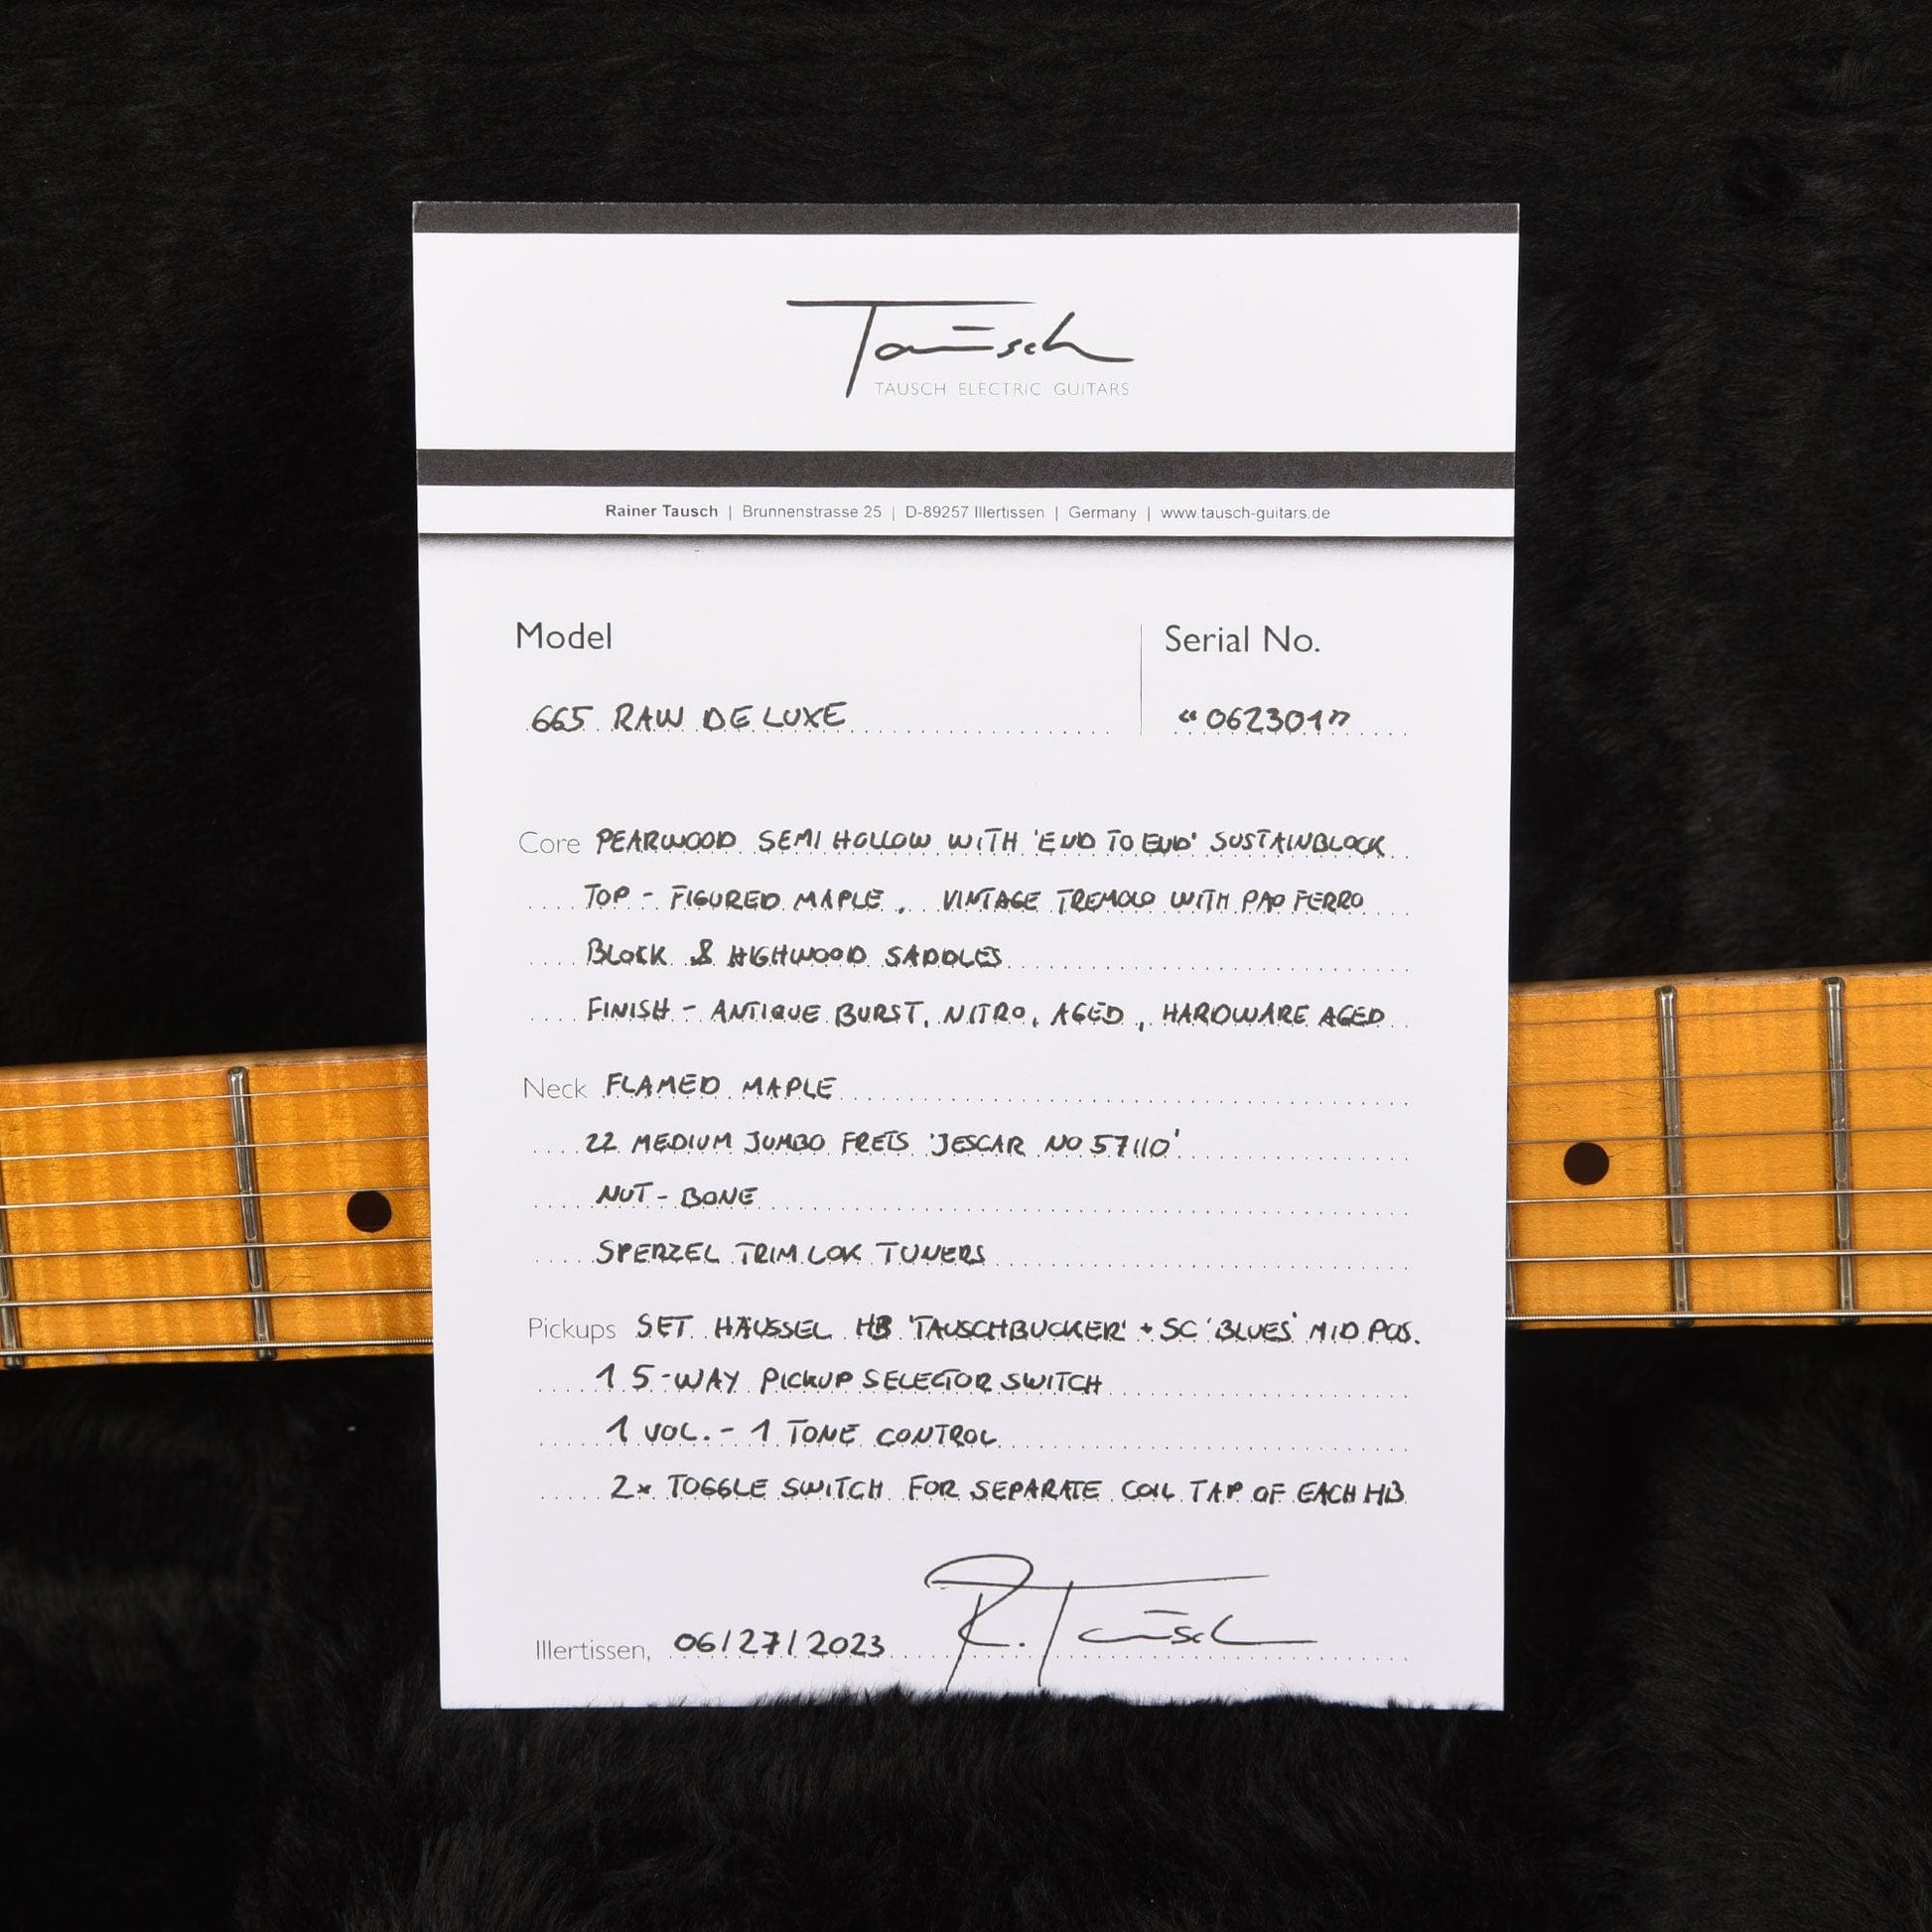 Tausch
TAUSCH ELECTRIC GUITARS
Rainer Tausch | Brunnenstrasse 25 | D-89257 Illertissen | Germany | www.tausch-guitars.de
Model
Serial No.
665 RAW DE LUXE
"062301"
Core PEARWOOD SEMI HOLLOW WITH 'END TO END' SUSTAINBLOCK
TOP - FIGURED MAPLE, VINTAGE TREMOLO WITH PAO FERRO
BLOCK & HIGHWOOD SADDLES
FINISH - ANTIQUE BURST, NITRO, AGED, HARDWARE AGED
Neck FLAMED MAPLE
22 MEDIUM JUMBO FRETS 'JESCAR NO 57110'
NUT - BONE
SPERZEL TRIM LOK TUNERS
Pickups SET HÄUSSEL HB 'TAUSCHBUCKER' + SC 'BLUES' MID POS.
1 5-WAY PICKUP SELECTOR SWITCH
1 VOL. - 1 TONE CONTROL
2x TOGGLE SWITCH FOR SEPARATE COIL TAP OF EACH HB
Illertissen, 06/27/2023 R. Tausch